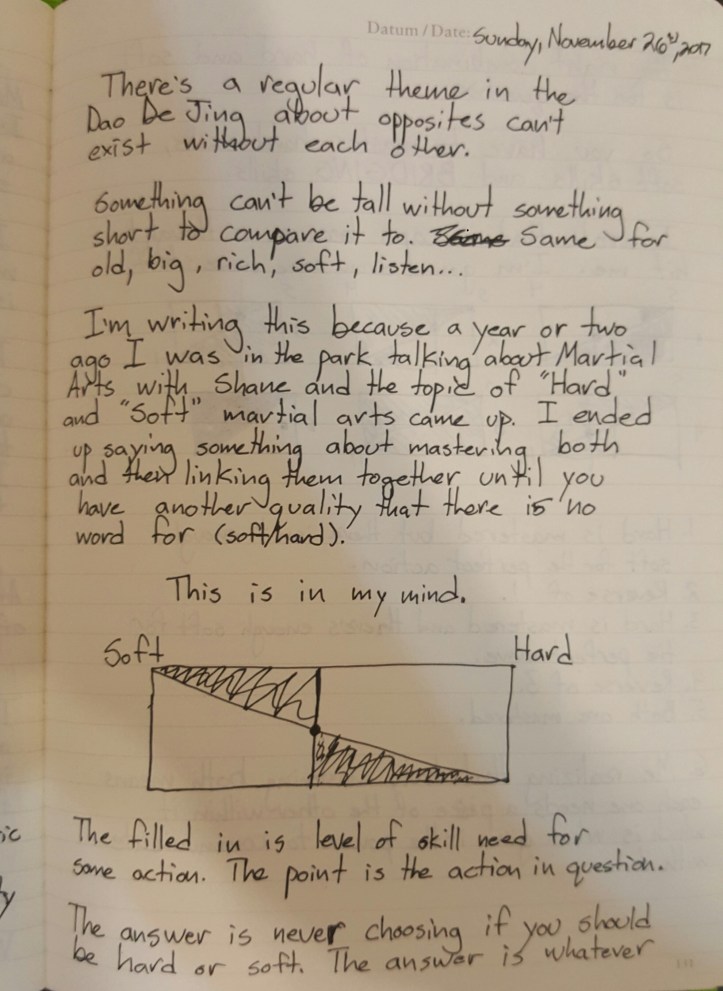 Datum / Date: Sunday, November 26th, 2017
There's a regular theme in the
Dao De Jing about opposites can't
exist without each other.
Something can't be tall without something
short to compare it to. Same for
old, big, rich, soft, listen...
I'm writing this because a year or two
ago I was in the park talking about Martial
Arts with Shane and the topic of "Hard"
and "Soft" martial arts came up. I ended
up saying something about mastering both
and then linking them together until you
have another quality that there is no
word for (soft/hard).
This is in my mind.
Soft Hard
The filled in is level of skill need for
some action. The point is the action in question.
The answer is never choosing if you should
be hard or soft. The answer is whatever